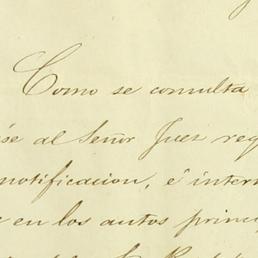 Como se consulta
se al Señor Juez reg
notificacion, é inter
en los autos princi